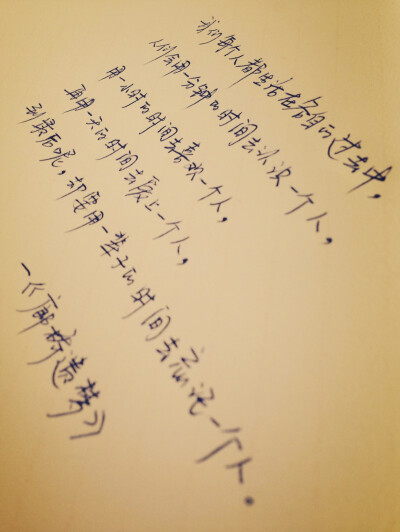 我们每个人都生活在各自的过去中，
人们会用一分钟的时间去认识一个人，
用一小时的时间去喜欢一个人，
再用一天的时间去爱上一个人，
到最后呢，却要用一辈子的时间去忘记一个人。
—《廊桥遗梦》